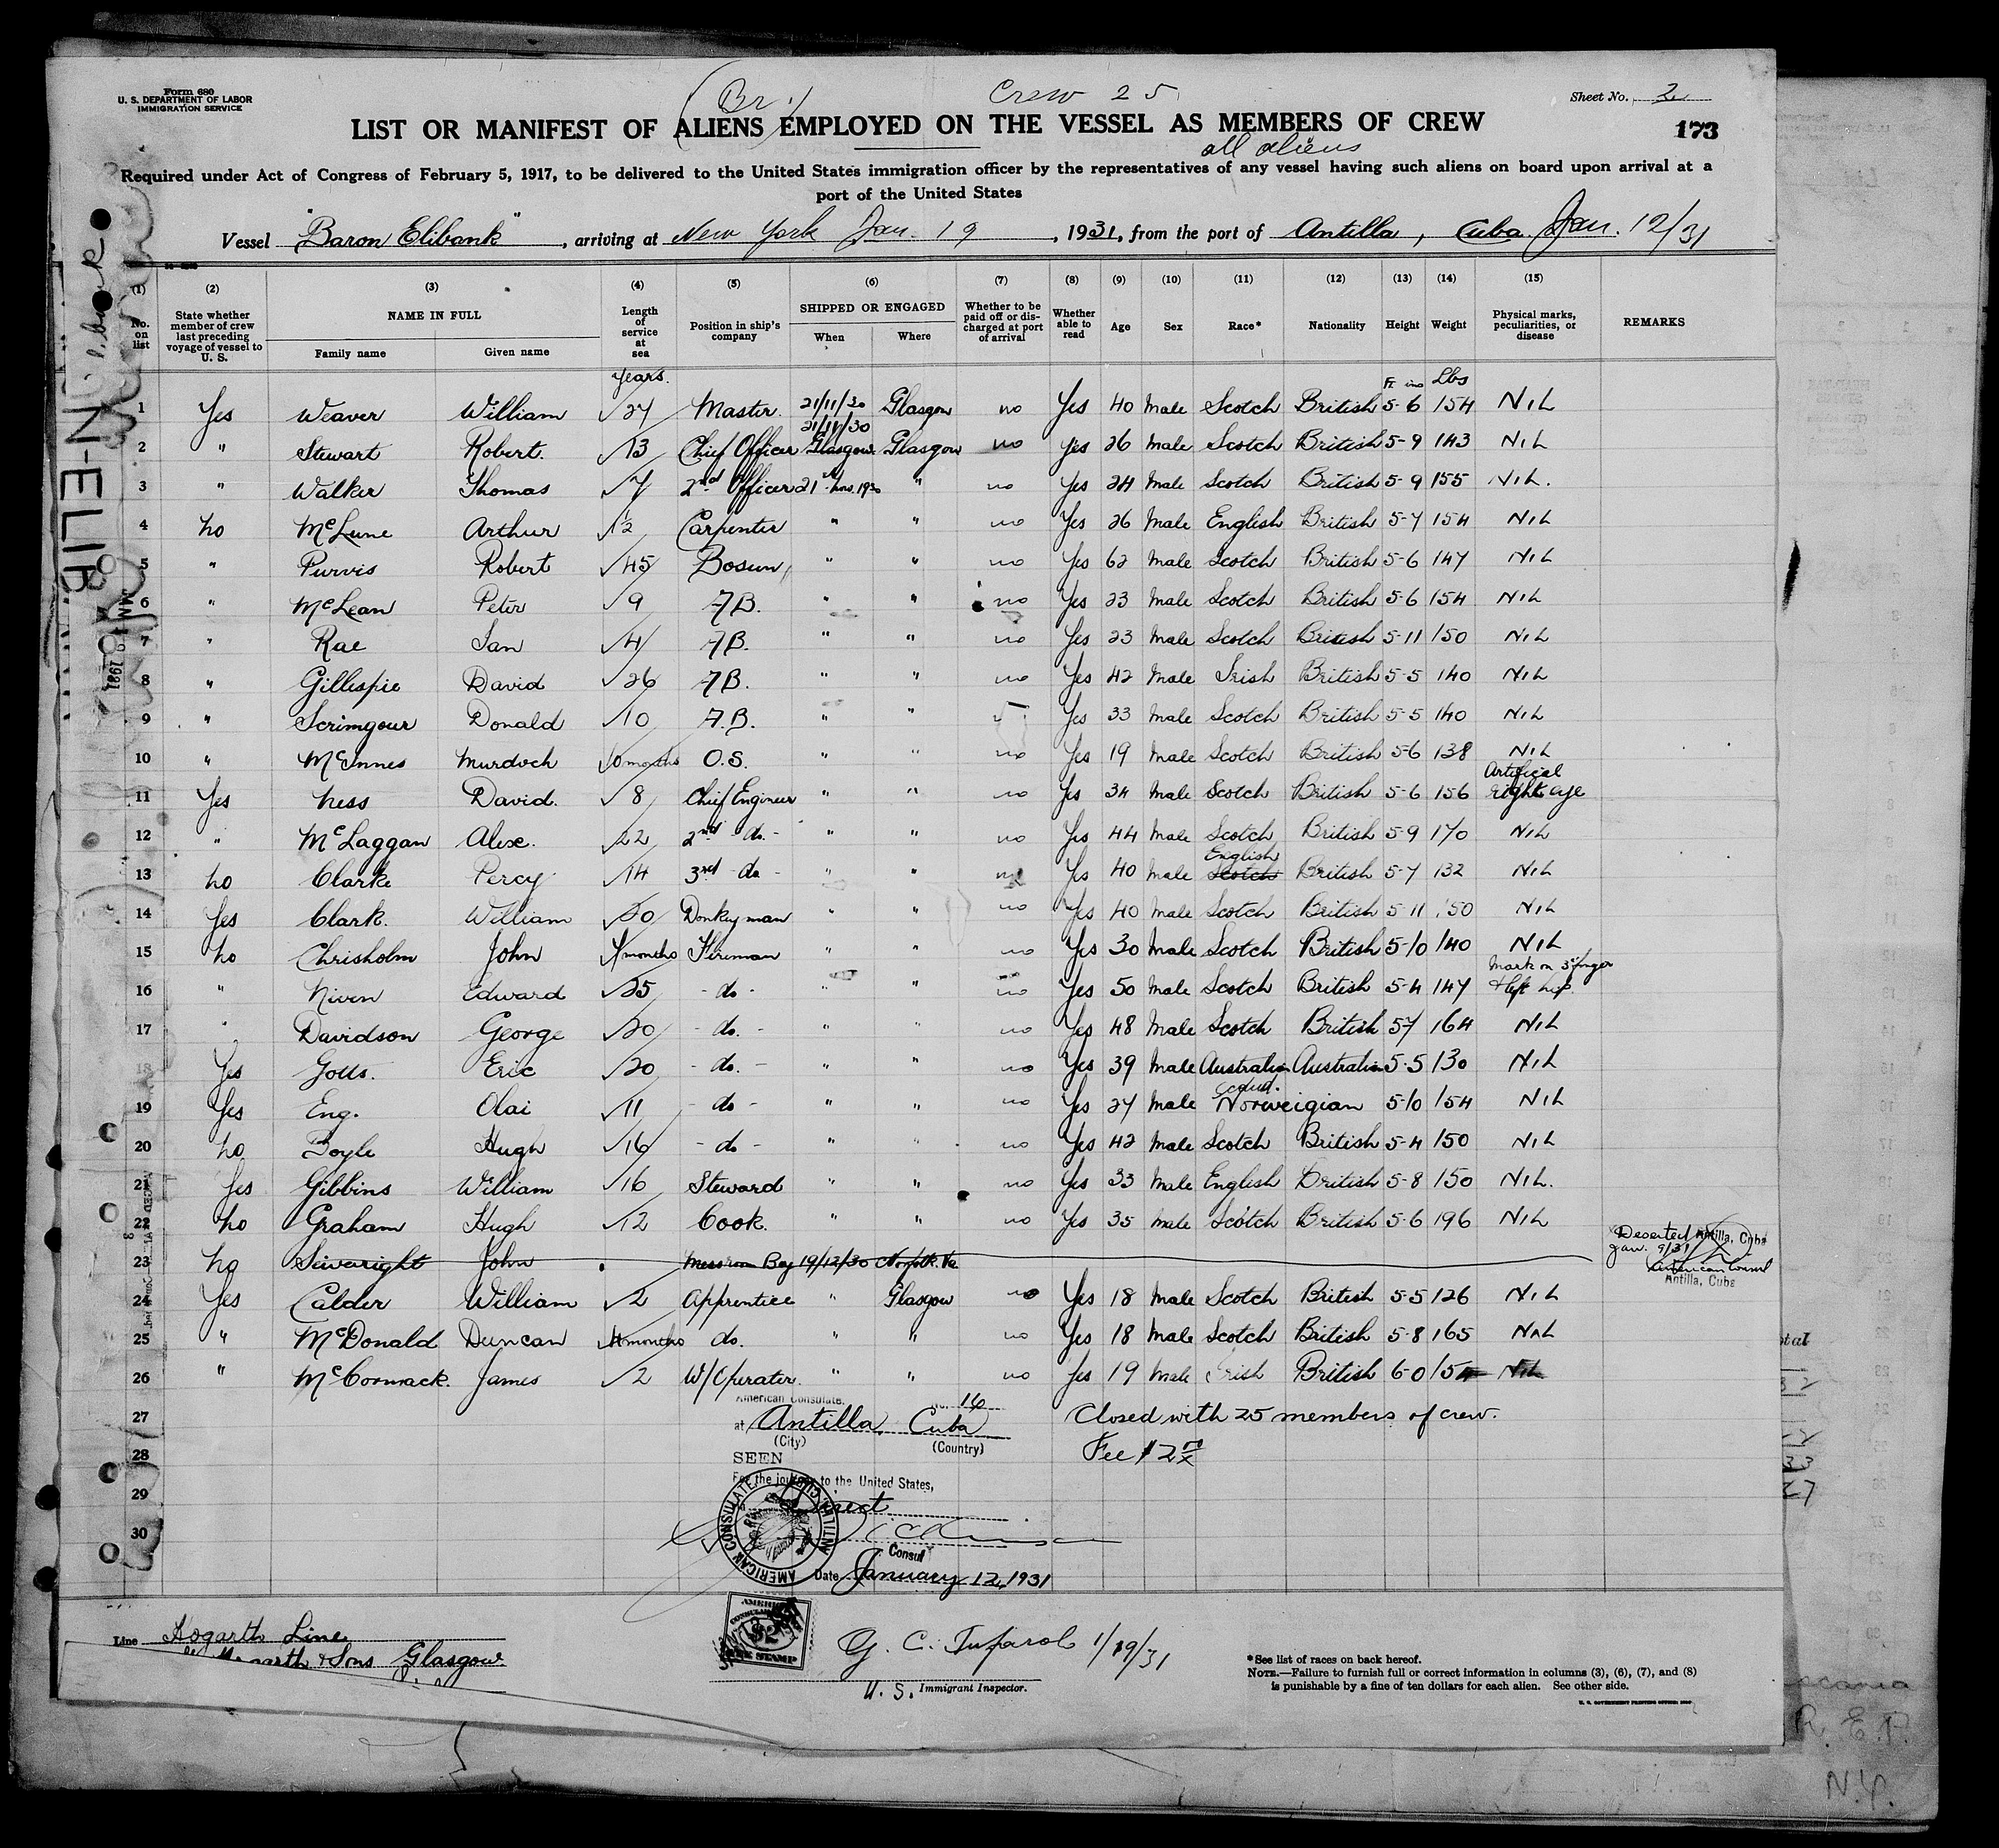 Form 680
U. S. DEPARTMENT OF LABOR
IMMIGRATION SERVICE
(Br.)
Crew 25
Sheet No. 2
LIST OR MANIFEST OF ALIENS EMPLOYED ON THE VESSEL AS MEMBERS OF CREW
173
all aliens
Required under Act of Congress of February 5, 1917, to be delivered to the United States immigration officer by the representatives of any vessel having such aliens on board upon arrival at a
port of the United States
Vessel "Baron Elibank", arriving at New York Jan. 19, 1931, from the port of Antilla, Cuba Jan. 12/31
(1) (2) (3) (4) (5) (6) (7) (8) (9) (10) (11) (12) (13) (14) (15)
No. on list
State whether member of crew last preceding voyage of vessel to U. S.
NAME IN FULL
Family name Given name
Length of service at sea
Position in ship's company
SHIPPED OR ENGAGED
When Where
Whether to be paid off or discharged at port of arrival
Whether able to read
Age Sex Race* Nationality Height Weight
Physical marks, peculiarities, or disease
REMARKS
years. Ft. ins Lbs
1 Yes Weaver William 27 Master. 21/11/30 Glasgow no Yes 40 Male Scotch British 5-6 154 NiL
21/11/30
2 " Stewart Robert. 13 Chief Officer Glasgow Glasgow no Yes 26 Male Scotch British 5-9 143 NiL
3 " Walker Thomas 7 2nd Officer 21st Nov. 1930 " no Yes 24 Male Scotch British 5-9 155 NiL.
4 no McLune Arthur 12 Carpenter " " no Yes 26 Male English British 5-7 154 NiL
5 " Purvis Robert 45 Bosun " " no Yes 62 Male Scotch British 5-6 147 NiL
6 " McLean Peter 9 A.B. " " no Yes 23 Male Scotch British 5-6 154 NiL
7 " Rae Ian 4 A.B. " " no Yes 23 Male Scotch British 5-11 150 NiL
8 " Gillespie David 26 A.B. " " no Yes 42 Male Irish British 5-5 140 NiL
9 " Scrimgour Donald 10 A.B. " " Yes 33 Male Scotch British 5-5 140 NiL
10 " McInnes Murdoch 10 months O.S. " " no Yes 19 Male Scotch British 5-6 138 NiL
11 Yes Ness David. 8 Chief Engineer " " no Yes 34 Male Scotch British 5-6 156 Artifical right eye
12 " McLaggan Alex. 22 2nd - do - " " no Yes 44 Male Scotch British 5-9 170 NiL
English
13 no Clarke Percy 14 3rd - do - " " no Yes 40 Male Scotch British 5-7 132 NiL
14 Yes Clark. William 20 Donkeyman " " no Yes 40 Male Scotch British 5-11 150 NiL
15 no Chrisholm John 4 months Fireman " " no Yes 30 Male Scotch British 5-10 140 NiL
16 " Niven Edward 25 - do - " " no Yes 50 Male Scotch British 5-4 147 Mark on 3rd finger & left hip.
17 " Davidson George 20 - do. - " " no Yes 48 Male Scotch British 5-7 164 NiL
18 Yes Eric 20 - do. - " no Yes 39 Male Australian Australian 5-5 130 NiL
19 Yes Eng. Olai 11 - do - " " no Yes 27 Male Norweigian 5-10 154 NiL
20 no Boyle Hugh 16 - do - " " no Yes 42 Male Scotch British 5-4 150 NiL
21 Yes Gibbins William 16 Steward " " no Yes 33 Male English British 5-8 150 NiL.
22 no Graham Hugh 12 Cook. " " no Yes 35 Male Scotch British 5-6 196 NiL
23 no Siveright John Messroom Boy 19/12/30 Norfolk. Va
Deserted Antilla, Cuba
Jan. 9/31
American Consul
Antilla, Cuba
24 Yes Calder William 2 Apprentice " Glasgow no Yes 18 Male Scotch British 5-5 126 NiL
25 " McDonald Duncan months do. " " no Yes 18 Male Scotch British 5-8 165 NiL
26 " McCormack. James 2 W/Operater. " " no Yes 19 Male Irish British 6-0 154 NiL
27
28
29
30
American Consulate, No. 16
at Antilla, Cuba
(City) (Country)
Closed with 25 members of crew.
SEEN
Fee $2
For the journey to the United States,
Direct
AMERICAN CONSULATE ANTILLA CUBA
Consul
Date January 12, 1931
Line Hogarth Line
Hogarth & Sons Glasgow
AMERICAN
FEE STAMP
1/19/31
U. S. Immigrant Inspector.
*See list of races on back hereof.
NOTE.—Failure to furnish full or correct information in columns (3), (6), (7), and (8)
is punishable by a fine of ten dollars for each alien. See other side.
R. E. P.
N.Y.